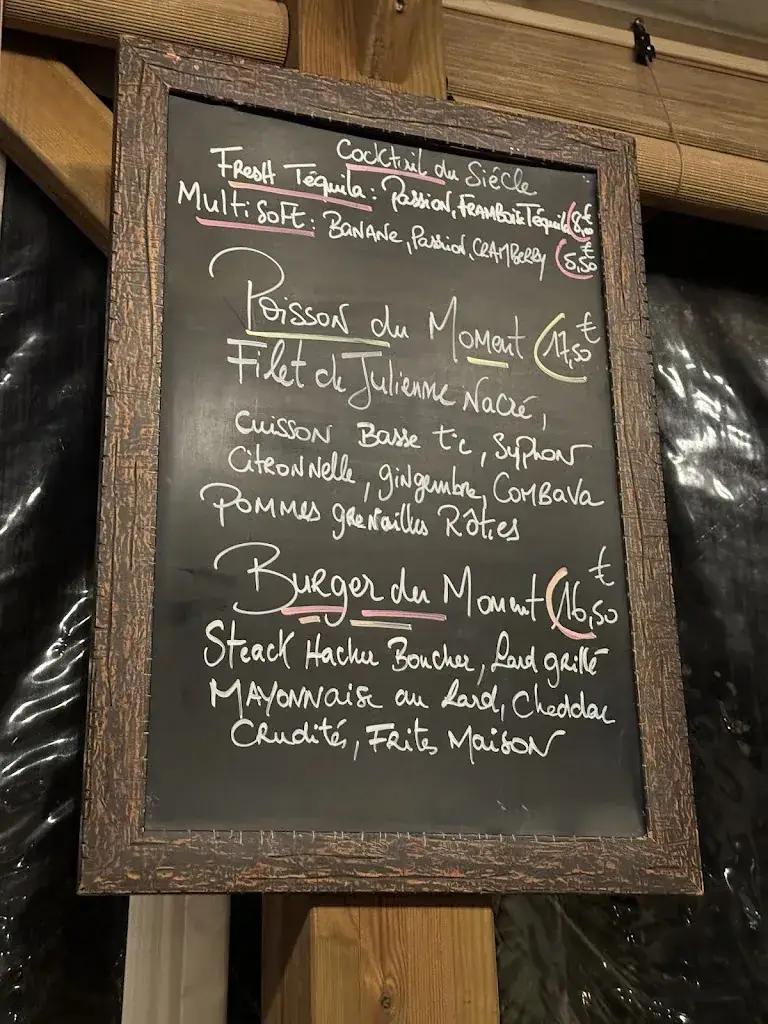 Cocktail du Siécle
Fresh Téquila: Passion, Framboise Téquila 8,00€
Multisoft: Banane, Passion, Cramberry 5,50€
Poisson du Moment 17,50€
Filet de Julienne Nacré,
Cuisson Basse t°c, Syphon
Citronnelle, gingembre, Combava
Pommes grenailles Rôties
Burger du Moment 16,50€
Steack Hachee Boucher, Lard grillé
Mayonnaise au Lard, Cheddar
Crudités, Frites Maison